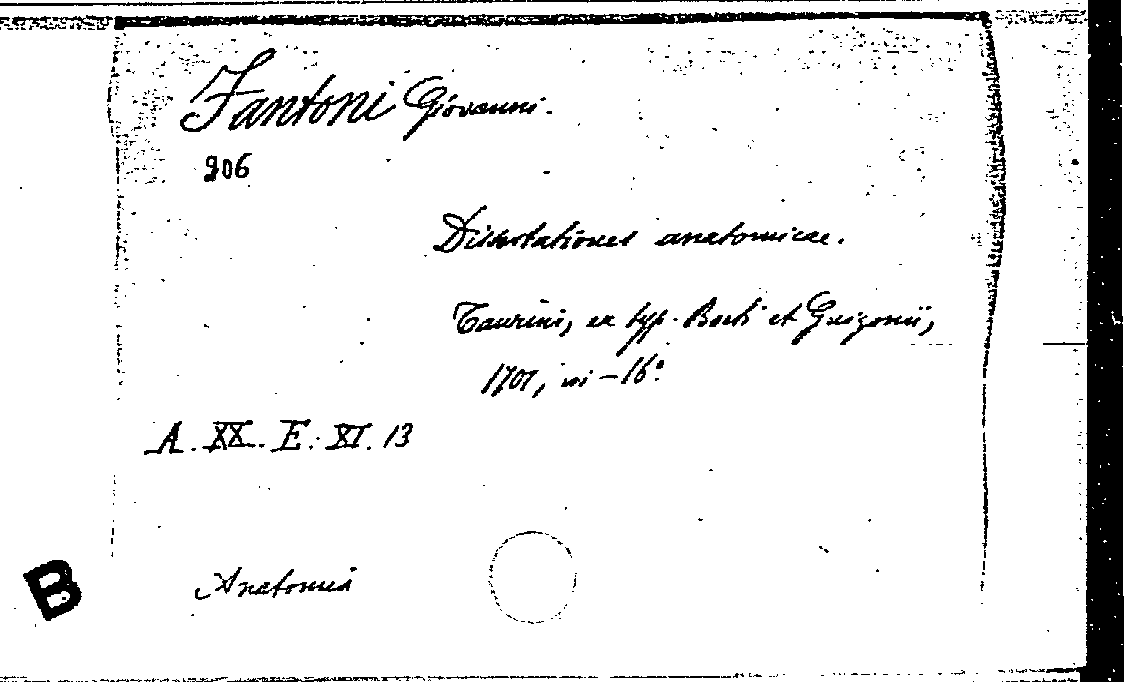 Fantoni Giovanni.
206
Dissertationes anatomicae.
Taurini, ex typ. et
1701, in-16°
A. XX. E. XI. 13
B
Anatomia